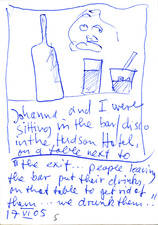 Johanna and I were
sitting in the bar/disco
in the Hudson Hotel,
on a table next to
the exit... people leaving
the bar put their drinks
on that table to get rid of
them... we drank them..."
17 VI 05
5